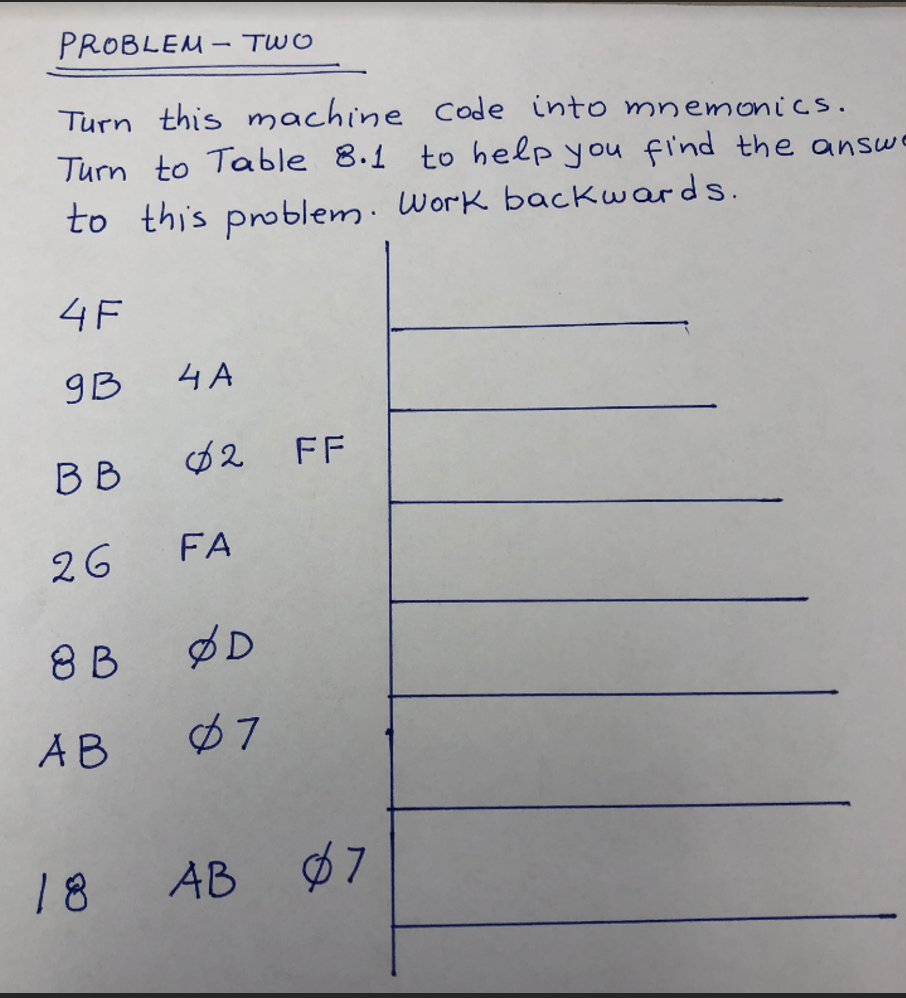 PROBLEM - TWO
Turn this machine code into mnemonics.
Turn to Table 8.1 to help you find the answe
to this problem. Work backwards.
4F
9B 4A
BB Ø2 FF
26 FA
8B ØD
AB Ø7
18 AB Ø7